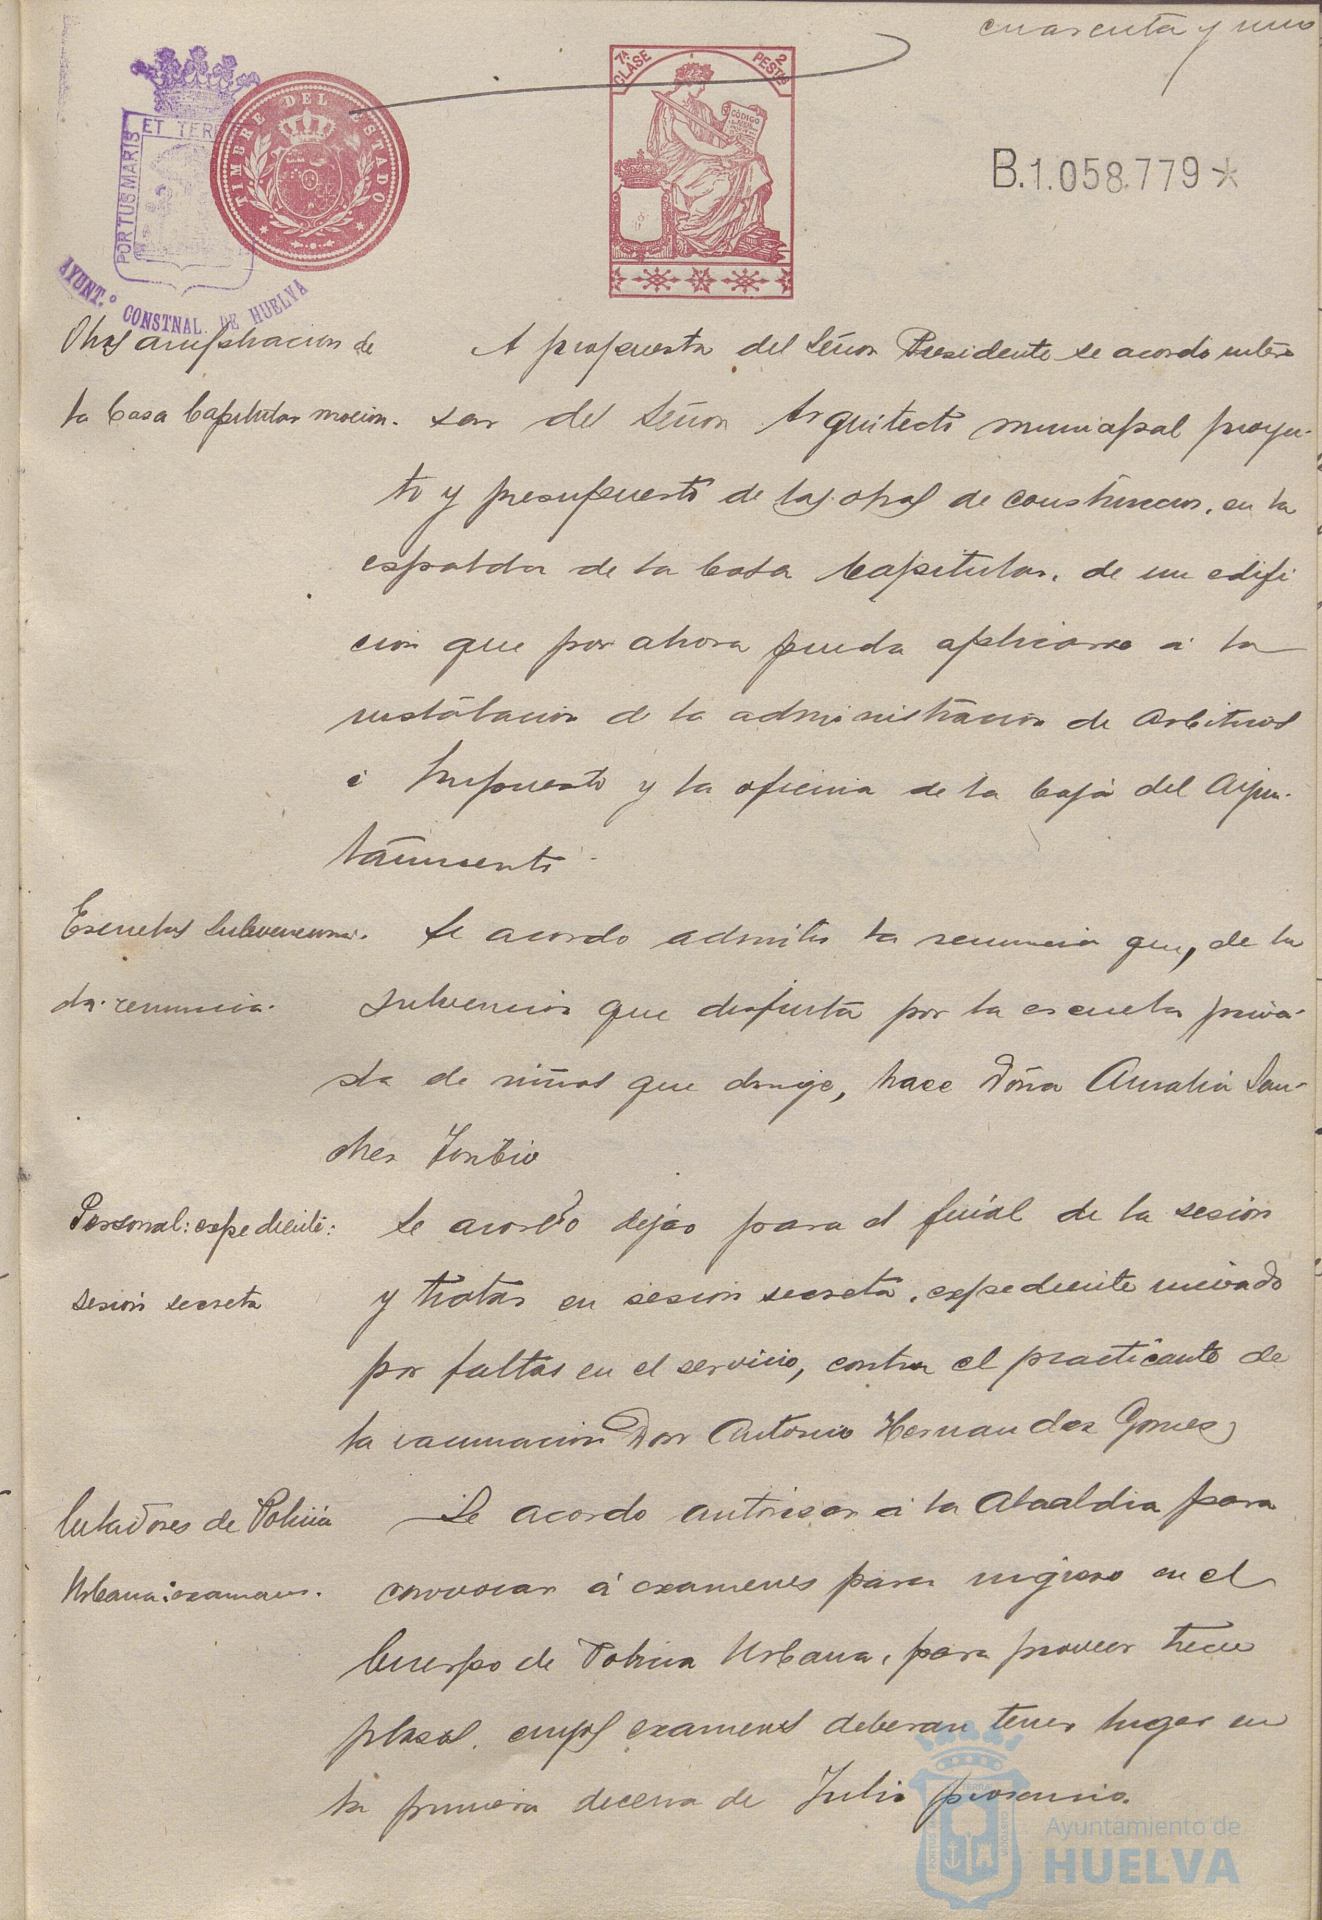 cuarenta y uno
7ª CLASE
2 PESTS
CÓDIGO
TIMBRE DEL ESTADO
PORTUS MARIS
ET TERR
AYUNT.º CONSTNAL. DE HUELVA
B.1.058.779*
Obras ampliacion de
la Casa Capitular mocion.
A propuesta del Señor Presidente se acordó intere
sar del Señor Arquitecto municipal proyec-
to y presupuesto de las obras de construccion, en la
espalda de la Casa Capitular, de un edifi
cion que por ahora pueda aplicarse á la
instalacion de la administracion de Arbitrios
é Impuesto y la oficina de la Caja del Ayun-
tamiento.
Escuelas subvenciona-
da: renuncia.
Se acordo admitir la renuncia que, de la
subvencion que disfruta por la escuela priva-
da de niños que dirige, hace Doña Amalia San-
chez Toribio
Personal: expediente:
sesion secreta
Se acordo dejar para el final de la sesion
y tratar en sesion secreta, expediente iniciado
por faltas en el servicio, contra el practicante de
la vacunacion Don Antonio Hernandez Gomez
Celadores de Policia
Urbana: examenes.
Se acordo autorizar á la Alcaldia para
convocar á examenes para ingreso en el
Cuerpo de Policia Urbana, para proveer trece
plazas, cuyos examenes deberan tener lugar en
la primera decena de Julio proximo.
Ayuntamiento de
HUELVA